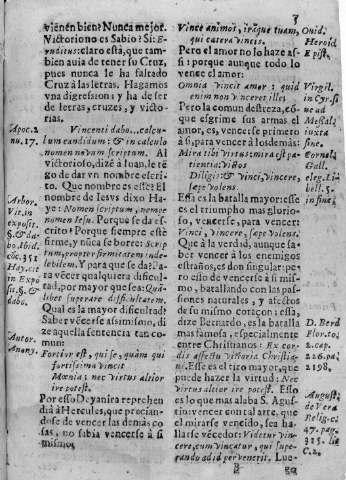 3
vienen bien? Nunca mejor.
Victoriono es Sabio? Si: E-
ruditus: claro està, que tam-
bien auia de tener su Cruz,
pues nunca le ha faltado
Cruz à las letras. Hagamos
vna digression: y ha de ser
de letras, cruzes, y victo-
rias.
Apoc. 2
nu. 17.
Vincenti dabo... calcu-
lum candidum: & in calculo
nomen novum scriptum. Al
victorioso, dizè à Iuan, le té-
go de dar vn nombre escri-
to. Que nombre es este? El
nombre de Iesvs dixo Ha-
ye: Nomen scriptum, nempe
nomen Iesu. Porque se da es-
crito? Porque siempre estè
firme, y nunca se borre: Scrip-
tum, propter firmitatem inde-
lebilem. Y para que se da? Pa-
ra vècer qualquiera dificul-
tad, por mayor que sea: Quã-
libet superare difficultatem.
Qual es la mayor dificultad?
Saber vècerse assimismo, di-
ze aquella sentencia tan co-
mun:
Arbor.
Vit. in
exposit.
§. & da-
bo. Ibid.
Hay. cit
in Expo
sit. §. &
dabo.
Autor.
Anony.
Fortior est, qui se, quàm qui
fortissima vincit
Mœnia: nec virtus altior
ire potest.
Por esso Deyanira reprehen-
dia à Hercules, que precian-
dose de vencer las demàs co-
sas, no sabia vencerse à si
mismo:
Vince animos, iràque tuam,
qui cætera vincis.
Ouid.
Heroid
Epist.
Pero el amor no lo haze as-
si: porque aunque todo lo
vence el amor:
Omnia vincit amor: quid
enim non vinceret illes
Virgil.
in Cyr. si
ne ad
Messal,
iuxta
fine.
Pero la comun destreza, cõ-
que esgrime sus armas el
amor, es, vencerse primero
à si, para vencer à los demàs:
Mira tibi virtus: mira est pa-
tientia; vinos
Diligit: & vinci, vincere,
sæpe volens.
Cornel.
Gall.
eleg. Li
bell.
5.
in fine.
Essa es la batalla mayor: esse
es el triumpho mas glorio-
so, vencerse, para vencer:
Vinci, vincere, sæpe volens.
Que à la verdad, aunque sa-
ber vencer à los enemigos
estraños, es don singular: pe-
ro esso de vencerse à si mis-
mo, batallando con las pas-
siones naturales, y afectos
de su mismo coraçon: essa,
dize Bernardo, es la batalla
mas famosa, especialmente
entre Christianos: Ex cor-
dis affectu victoria Christia-
ni. Esse es el tiro mayor, que
puede hazer la virtud: Nec
virtus altior ire potest. Esso
es lo que mas alaba S. Agus-
tin: vencer con tal arte, que
el mirarse vencido, sea ha-
llarse vècedor: Videtur vin-
cere, cum vincatur, qui supe-
rando ad id pervenerit. Lue-
D. Berd
Flor. to,
2. cap.
226. pa.
2198,
August.
de Vera
Relig. c.
47. pag.
315. lit
C. 2.
B
go